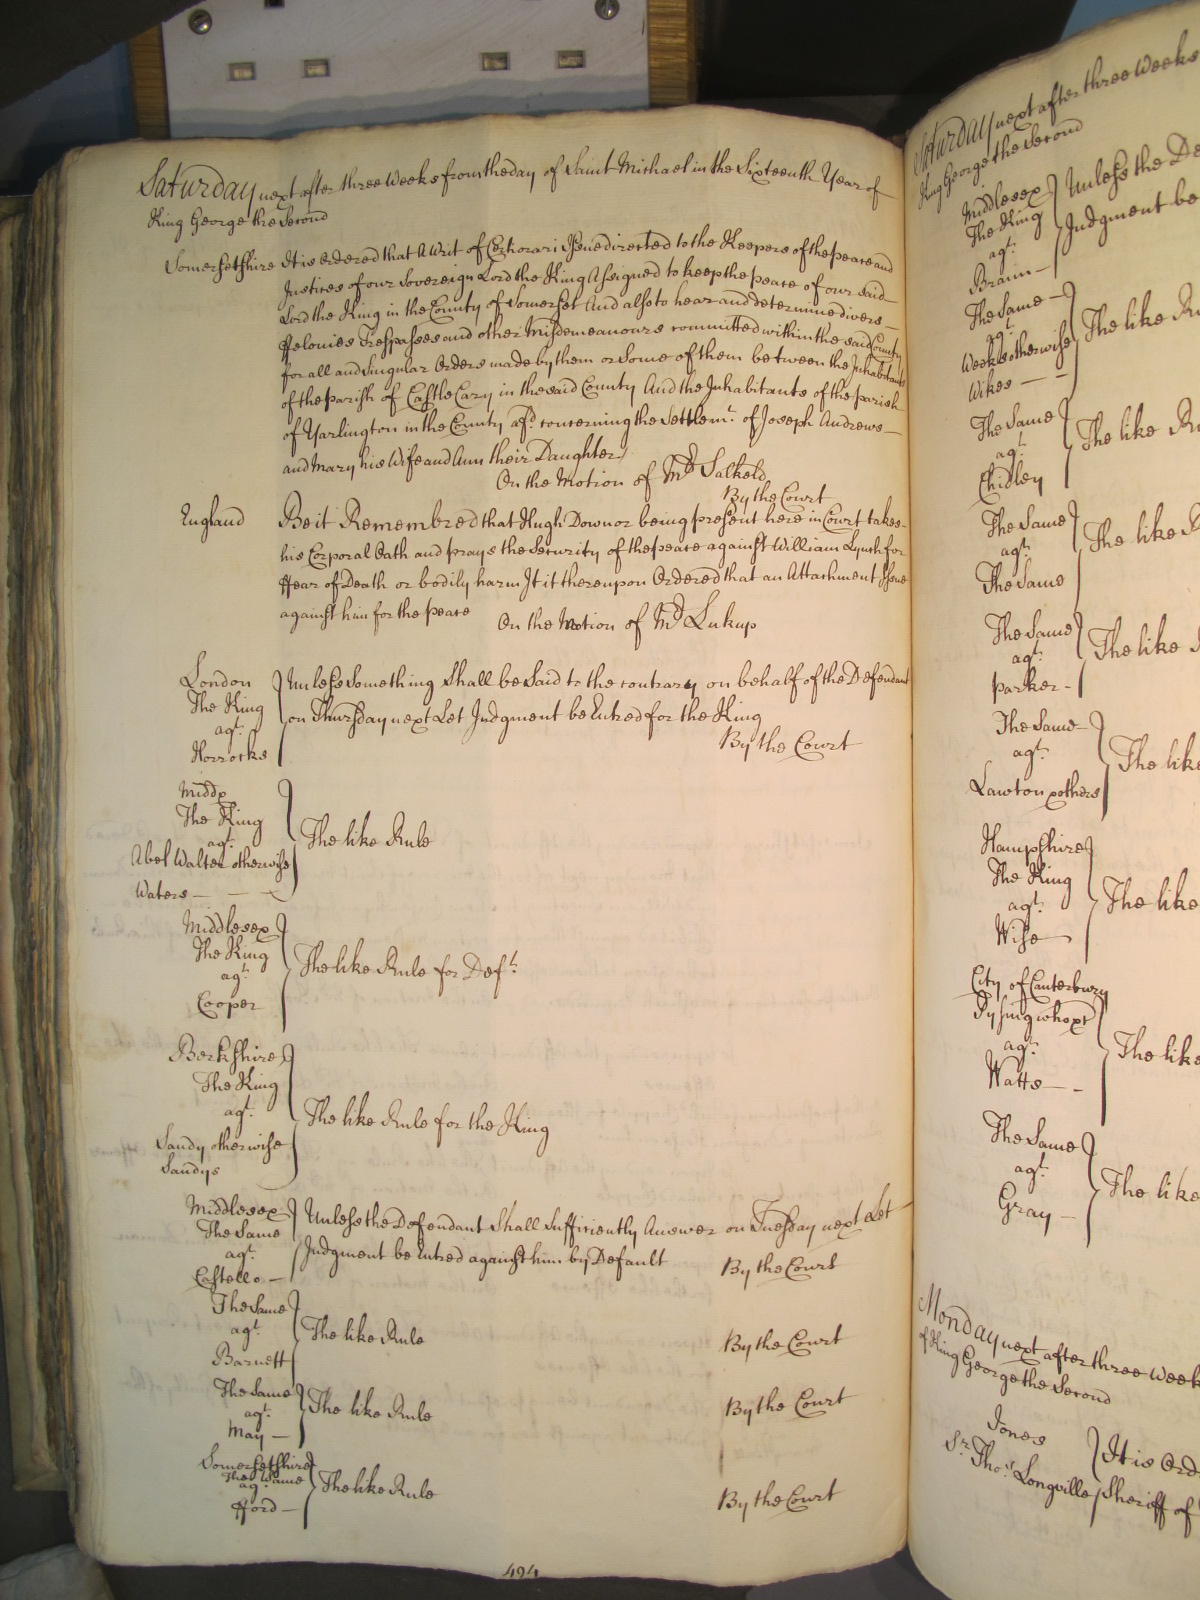 Saturday next after three Weeks from the day of Saint Michael in the Sixteenth Year of
King George the Second
Somersetshire It is Ordered that a Writ of Certiorari Issue directed to the Keepers of the peace and
Justices of our Sovereign Lord the King Assigned to keep the peace of our said
Lord the King in the County of Somerset And also to hear and determine divers
ffelonies Trespasses and other Misdemeanours committed within the said County
for all and Singular Orders made by them or Some of them between the Inhabitants
of the parish of Castle Cary in the said County And the Inhabitants of the parish
of Yarlington in the County afd. concerning the Settlemt. of Joseph Andrews
and Mary his Wife and Ann their Daughter
On the Motion of Mr. Salkeld
By the Court
England Be it Remembred that Hugh Downor being present here in Court takes
his Corporal Oath and prays the Security of the peace against William Lynch for
ffear of Death or bodily harm It it thereupon Ordered that an Attachment Issue
against him for the peace
On the Motion of Mr. Lukup
London
The King
agt.
Horrocks
Unless Something Shall be Said to the contrary on behalf of the Defendant
on Thursday next Let Judgment be Entred for the King
By the Court
Middx
The King
agt.
Abel Walter otherwise
Waters
The like Rule
Middlesex
The King
agt.
Cooper
The like Rule for Deft.
Berkshire
The King
agt.
Sandy otherwise
Sandys
The like Rule for the King
Middlesex
The Same
agt.
Castello
Unless the Defendant Shall Sufficiently Answer on Tuesday next Let
Judgment be Entred against him by Default
By the Court
The Same
agt.
Barnett
The like Rule
By the Court
The Same
agt.
May
The like Rule
By the Court
Somersetshire
The Same
agt.
fford
The like Rule
By the Court
494
Saturday next after three Weeks
King George the Second
Middlesex
The King
agt.
Brain
Unless the De
Judgment be
The Same
agt.
Weeks otherwise
Wikes
The like Ru
The Same
agt.
Chidley
The like Ru
The Same
agt.
The Same
The like R
The Same
agt.
parker
The like
The Same
agt.
Lawton & others
The like
Hampshire
The King
agt.
Wise
The like
City of Canterbury
agt.
Watts
The like
The Same
agt.
Gray
The like
Monday next after three Week
of King George the Second
Jones
Sr. Thos. Longville
It is Ord
Sheriff of